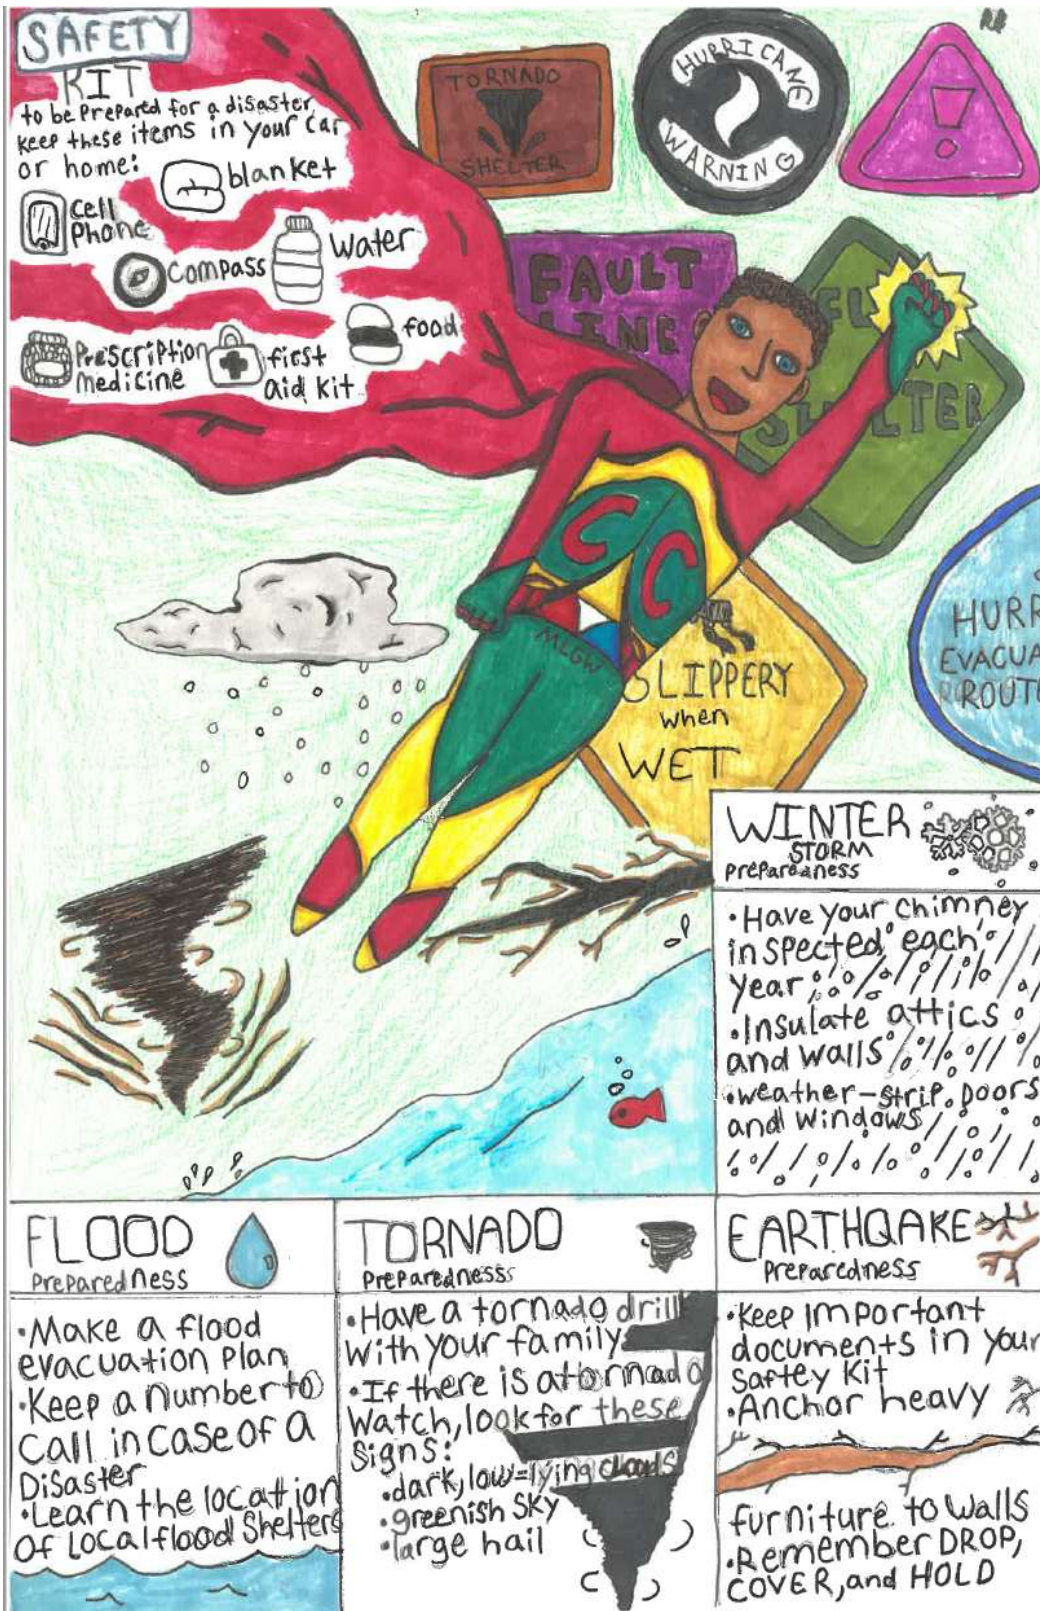 SAFETY
KIT
to be prepared for a disaster,
keep these items in your car
or home:
blanket
cell
phone
Water
compass
food
Prescription
medicine
first
aid kit
TORNADO
SHELTER
HURRICANE
WARNING
!
RR
FAULT
LINE
SHELTER
C C
MLGW
SLIPPERY
when
WET
HURR
EVACUA
ROUTE
WINTER
STORM
Preparedness
•Have your chimney
inspected each
year
•Insulate attics
and walls
•weather-strip Doors
and windows
FLOOD
Preparedness
•Make a flood
evacuation Plan
•Keep a number to
call in case of a
Disaster
•Learn the location
of local flood Shelters
TORNADO
Preparedness
•Have a tornado drill
With your family
•If there is a tornado
Watch, look for these
Signs:
•dark, low-lying clouds
•greenish sky
•large hail
EARTHQAKE
Preparedness
•Keep Important
documents in your
Saftey Kit
•Anchor heavy
furniture to walls
•Remember DROP,
COVER, and HOLD